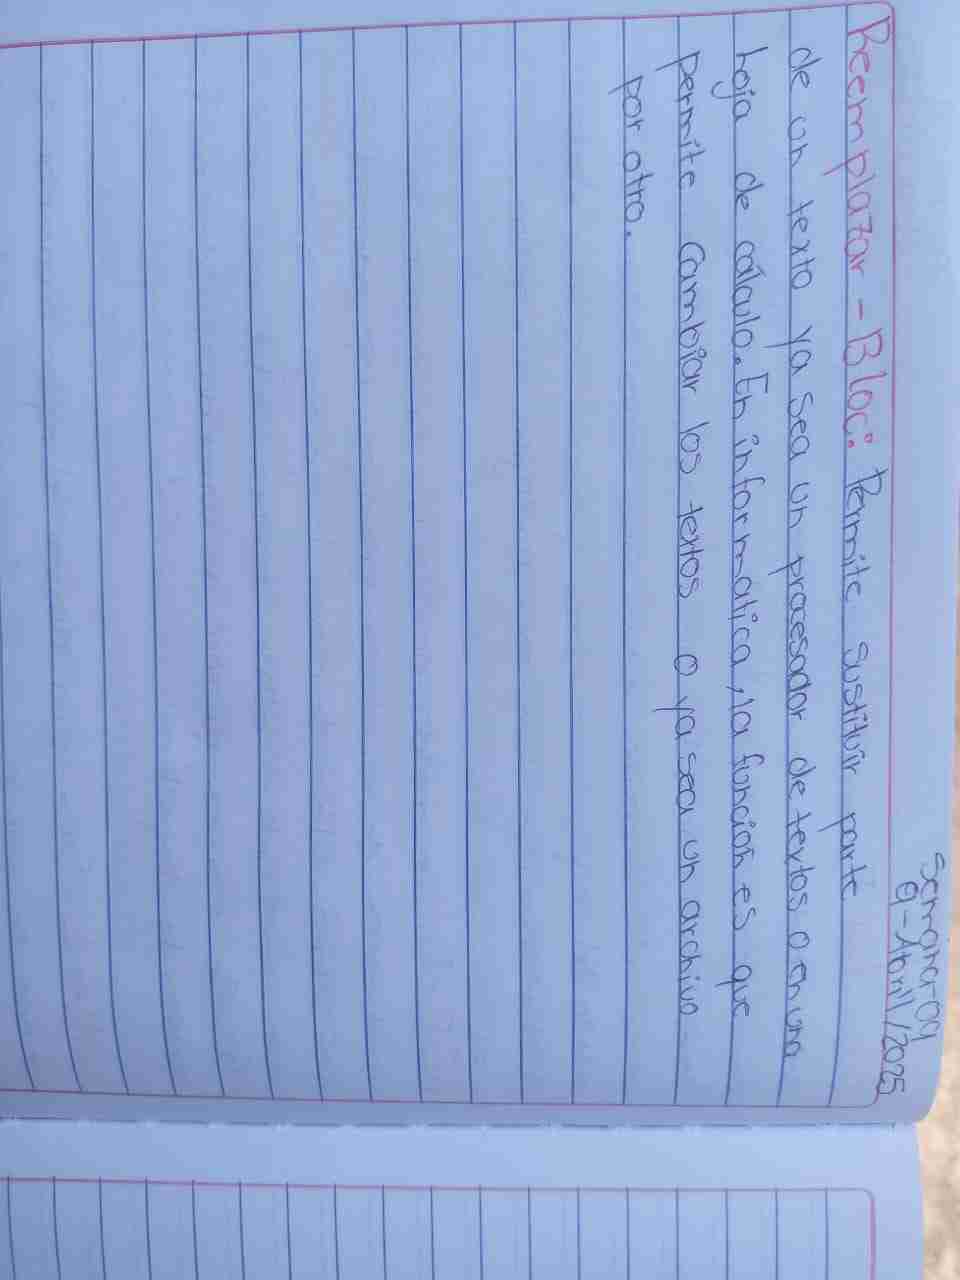 Semana-09
9-Abril/2025
Reemplazar - Bloc: Permite sustituir parte
de un texto ya sea un procesador de textos o en una
hoja de cálculo. En informatica, la función es que
permite cambiar los textos o ya sea un archivo
por otro.